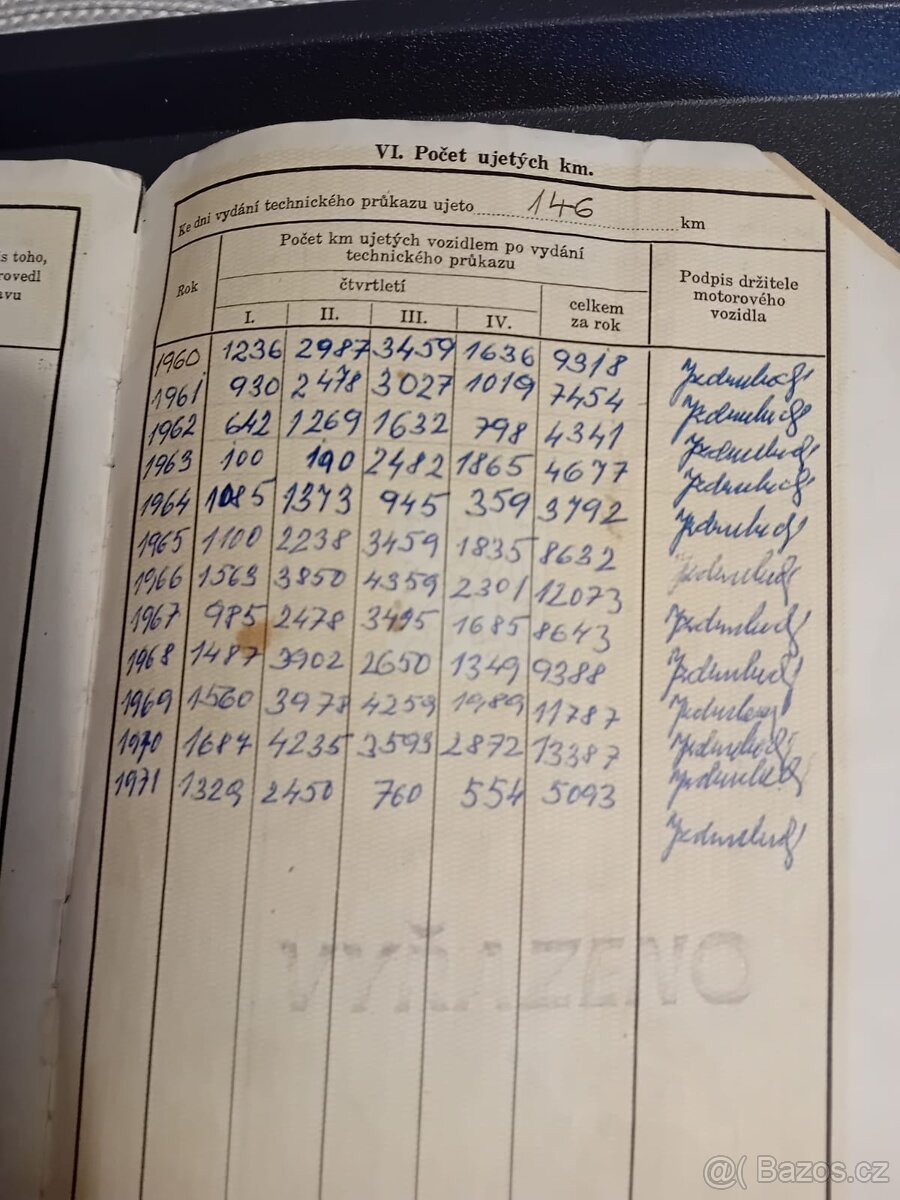 s toho,
rovedl
avu
VI. Počet ujetých km.
Ke dni vydání technického průkazu ujeto 146 km
Rok
Počet km ujetých vozidlem po vydání
technického průkazu
čtvrtletí
I. II. III. IV.
celkem
za rok
Podpis držitele
motorového
vozidla
1960 1236 2987 3459 1636 9318
1961 930 2478 3027 1019 7454
1962 642 1269 1632 798 4341
1963 100 190 2482 1865 4677
1964 1085 1373 945 359 3792
1965 1100 2238 3459 1835 8632
1966 1563 3850 4359 2301 12073
1967 985 2478 3495 1685 8643
1968 1487 3902 2650 1349 9388
1969 1560 3978 4259 1989 11787
1970 1687 4235 3593 2872 13387
1971 1329 2450 760 554 5093
VYŘAZENO
@( Bazos.cz